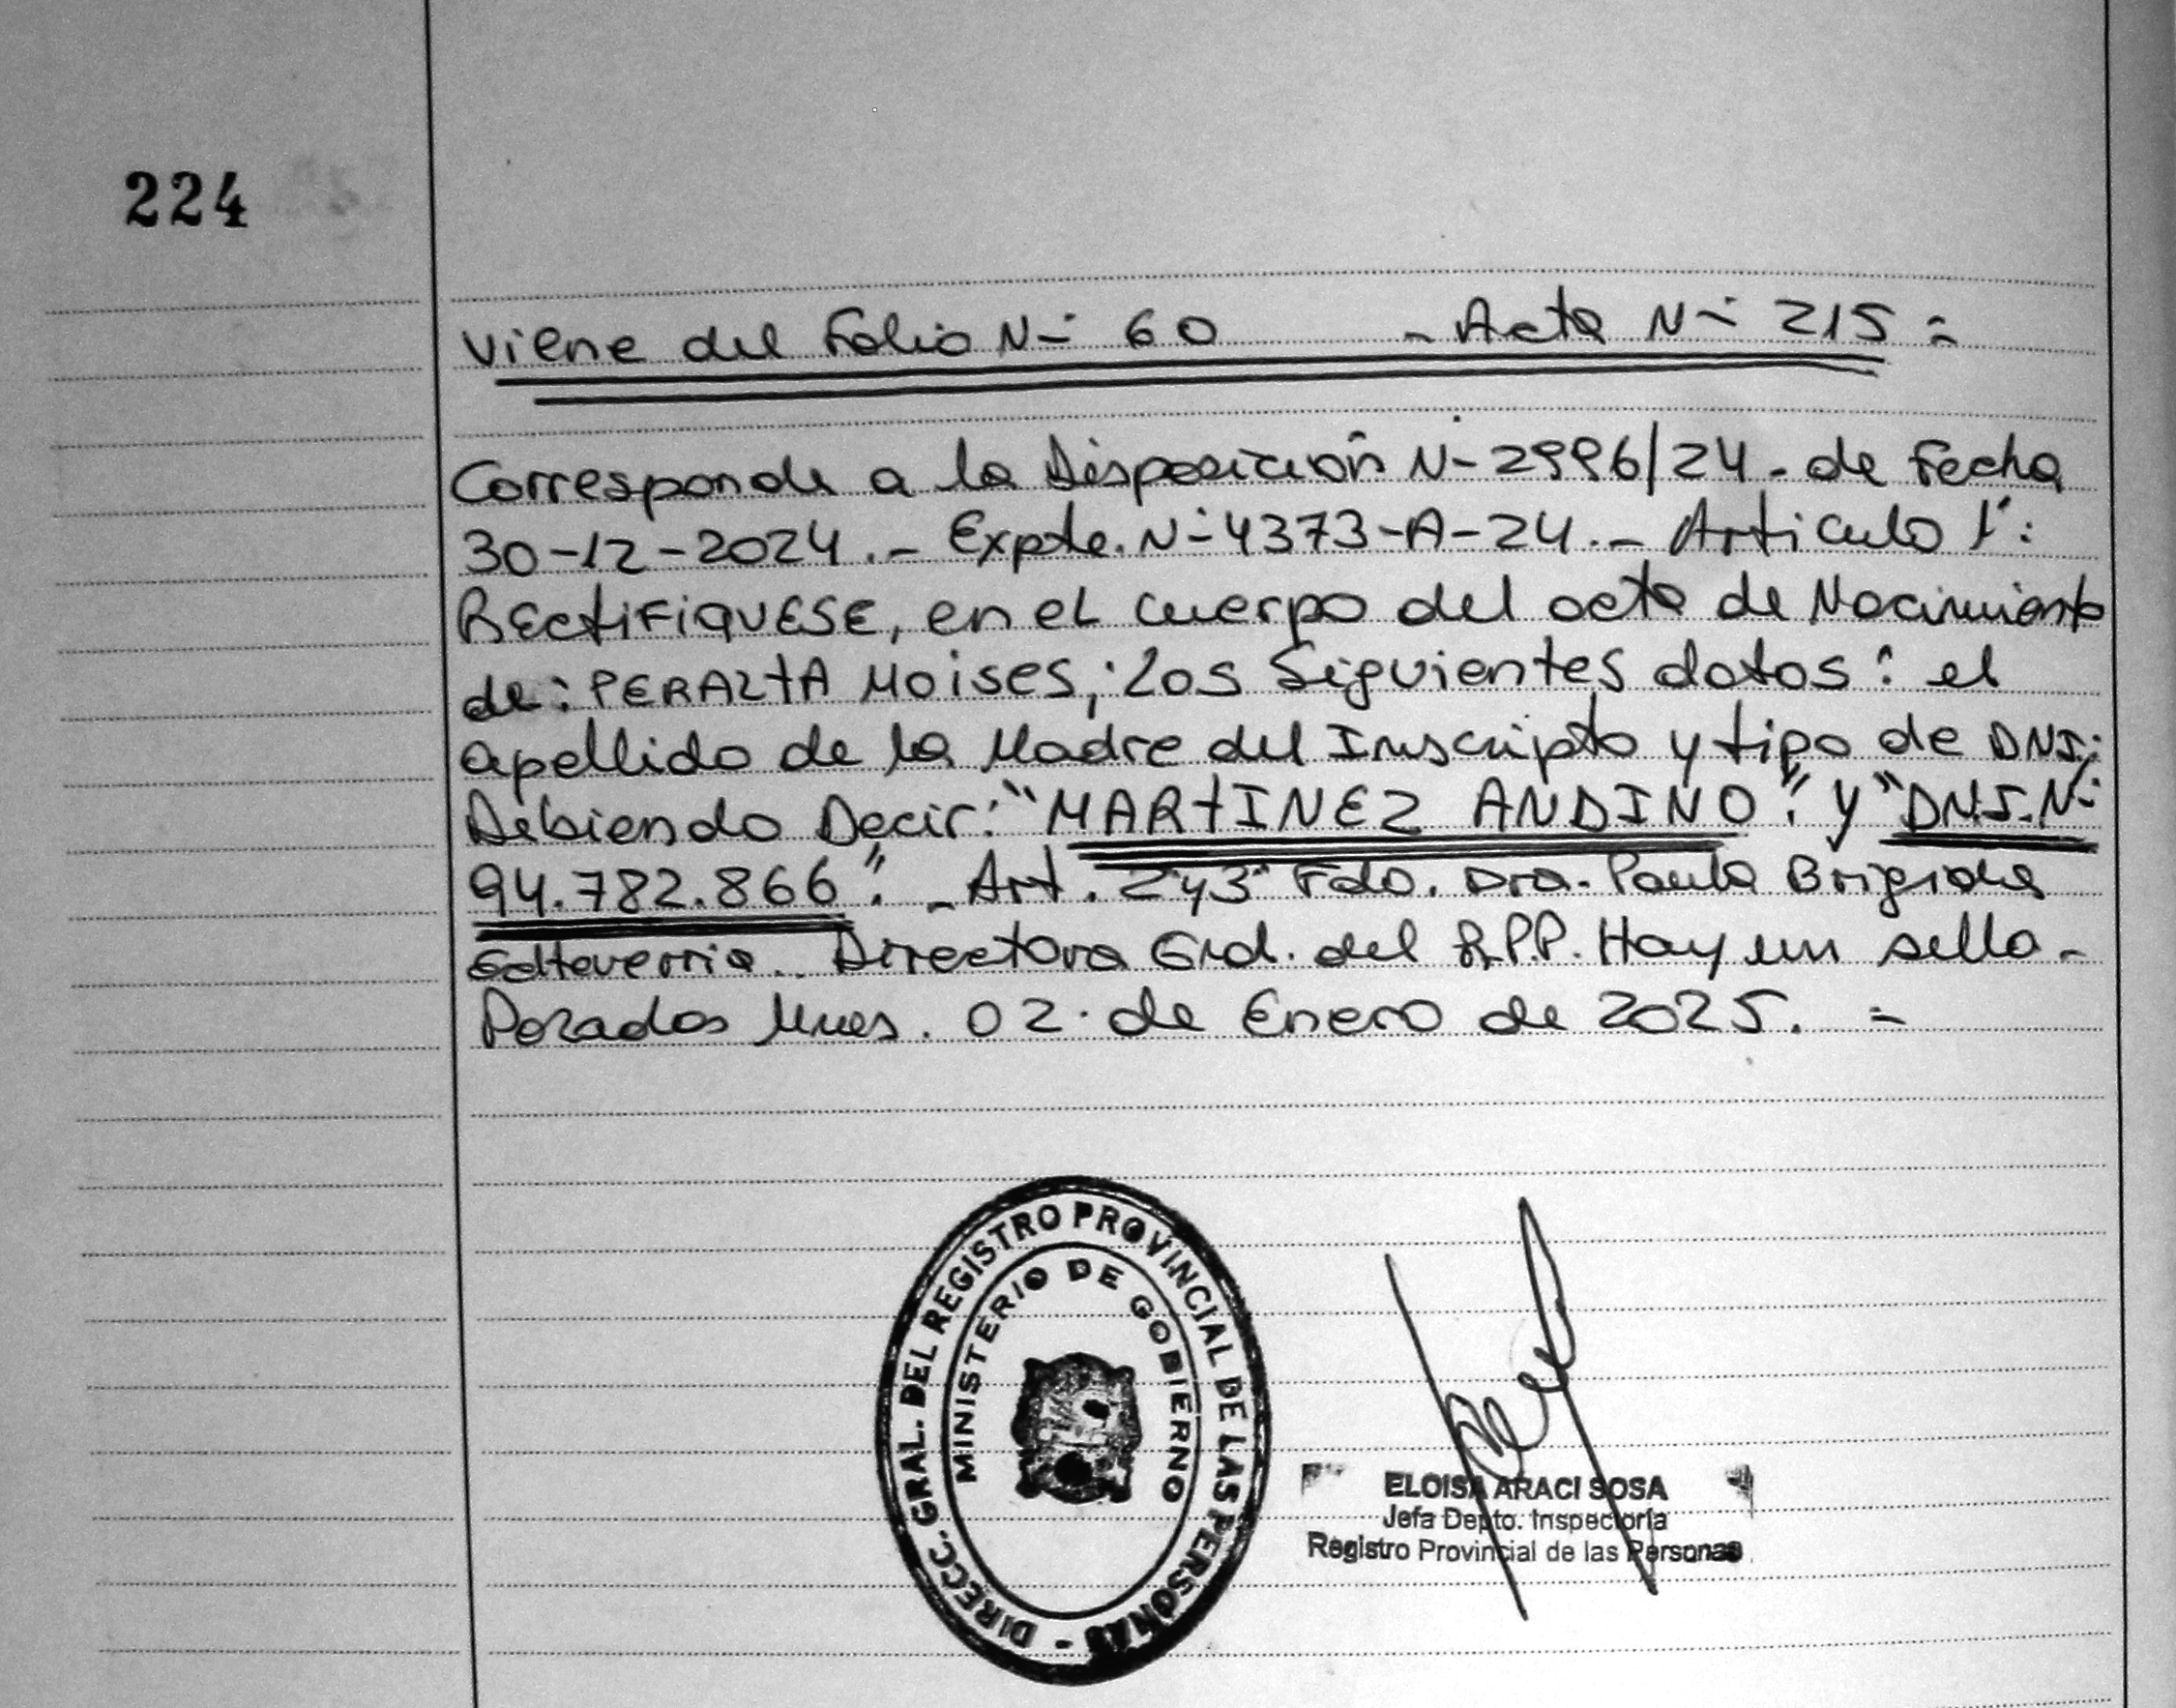 224
Viene del Folio N- 60 - Acta N- 215 =
Corresponde a la Disposición N- 2996/24 - de Fecha
30-12-2024.- Expte. N- 4373-A-24.- Articulo 1°:
RECtiFiQUESE, en el cuerpo del acta de Nacimiento
de: PERALtA Moises; Los Siguientes datos: el
apellido de la Madre del Inscripto y tipo de DNI;
Debiendo Decir: "MARtINEZ ANDINO". Y "D.N.I. N-
94.782.866". - Art. 2y3° Fdo. Dra. Paula Brigida
Echteverria. Directora Gral. del R.P.P. Hay un sello -
Posadas Mnes. 02 de Enero de 2025. =
DIRECC. GRAL. DEL REGISTRO PROVINCIAL DE LAS PERSONAS -
MINISTERIO DE GOBIERNO
ELOISA ARACI SOSA
Jefa Depto. Inspectoría
Registro Provincial de las Personas